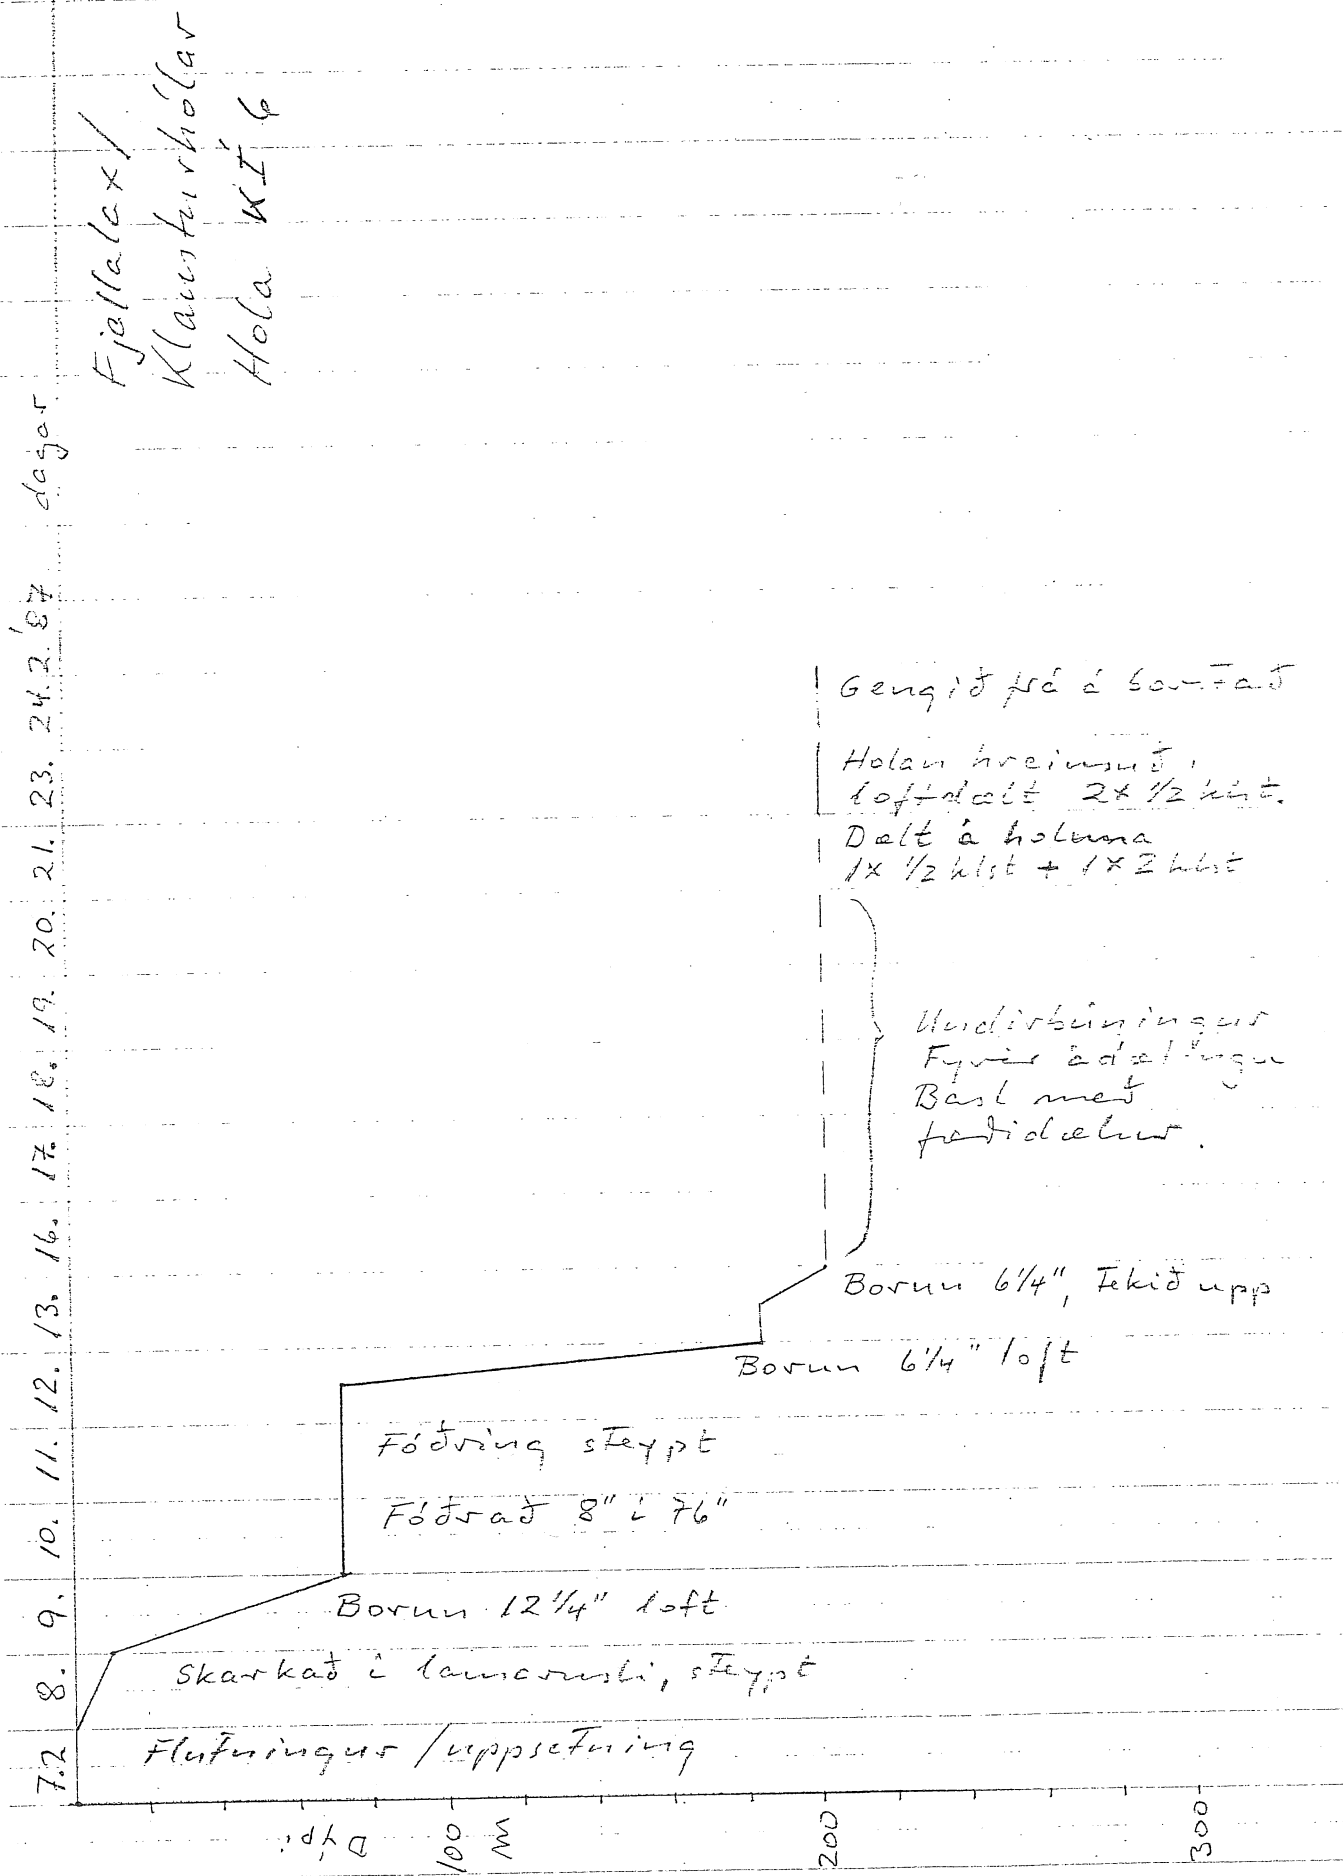 Fjallalax/
Klausturhólar
Hola KÍ 6
7.2 8. 9. 10. 11. 12. 13. 16. 17. 18. 19. 20. 21. 23. 24.2.'87 dagar
Gengið frá á borstað
Holan hreinsuð,
loftdælt 2x 1/2 klst.
Dælt á holuna
1x 1/2 klst + 1x2 klst
Undirbúningur
Fyrir ádælingu
Basl með
fæðidælur.
Borun 6 1/4", Tekið upp
Borun 6 1/4" loft
Fóðring steypt
Fóðrað 8" í 76"
Borun 12 1/4" loft
Skarkað í lausarusli, steypt
Flutningur / uppsetning
Dýpi 100 m 200 300